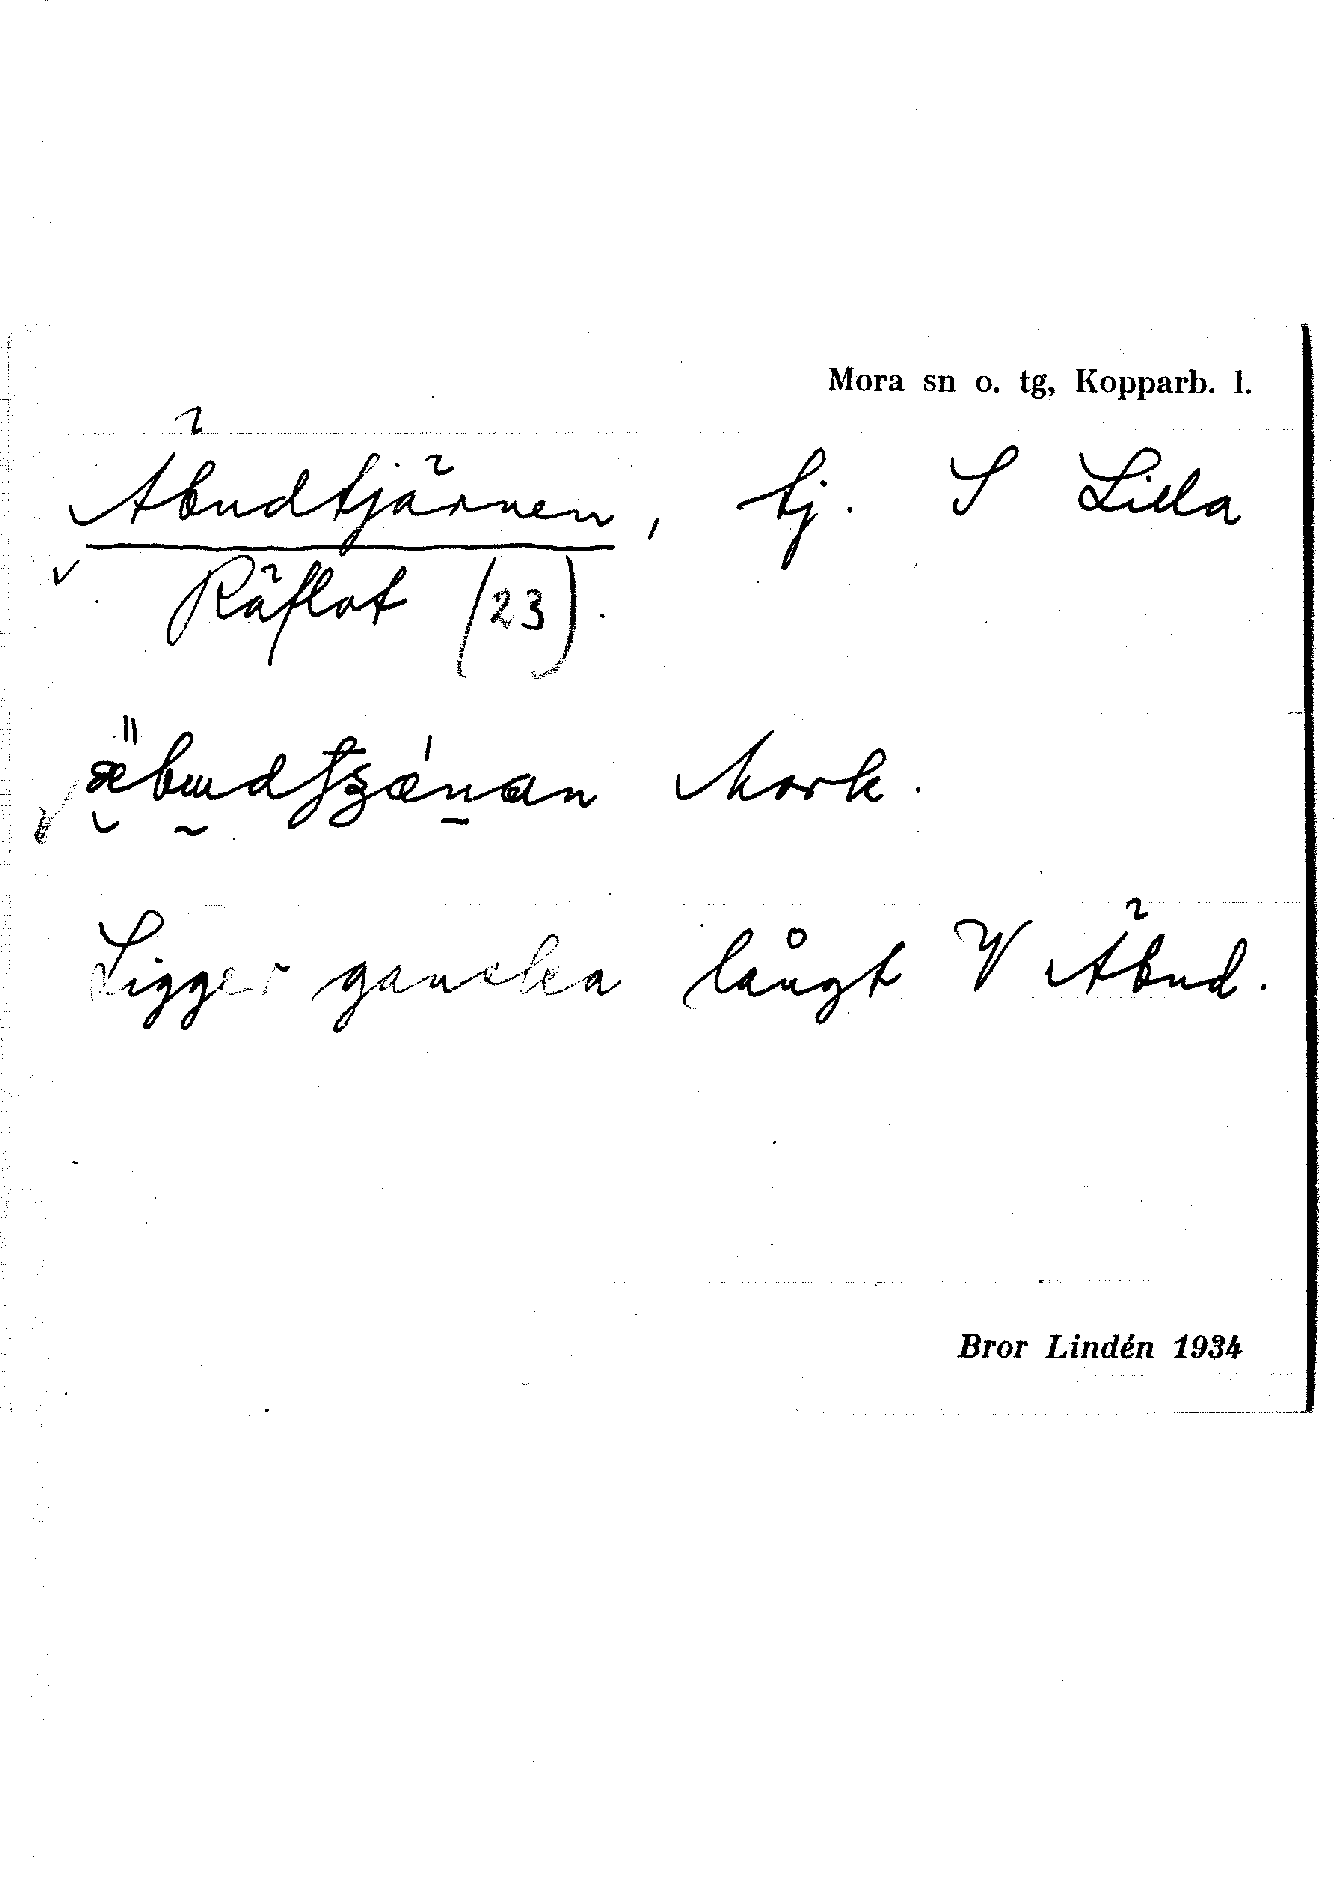 Mora sn o. tg, Kopparb. l.
Äbudtjärnen, tj. S Lilla
Räflot (23).
Mork.
Ligger ganska långt V Äbud.
Bror Lindén 1934